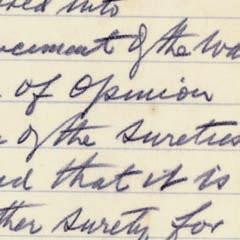 into
of the
of Opinion
of the Sureties
that it is
ther Surety for